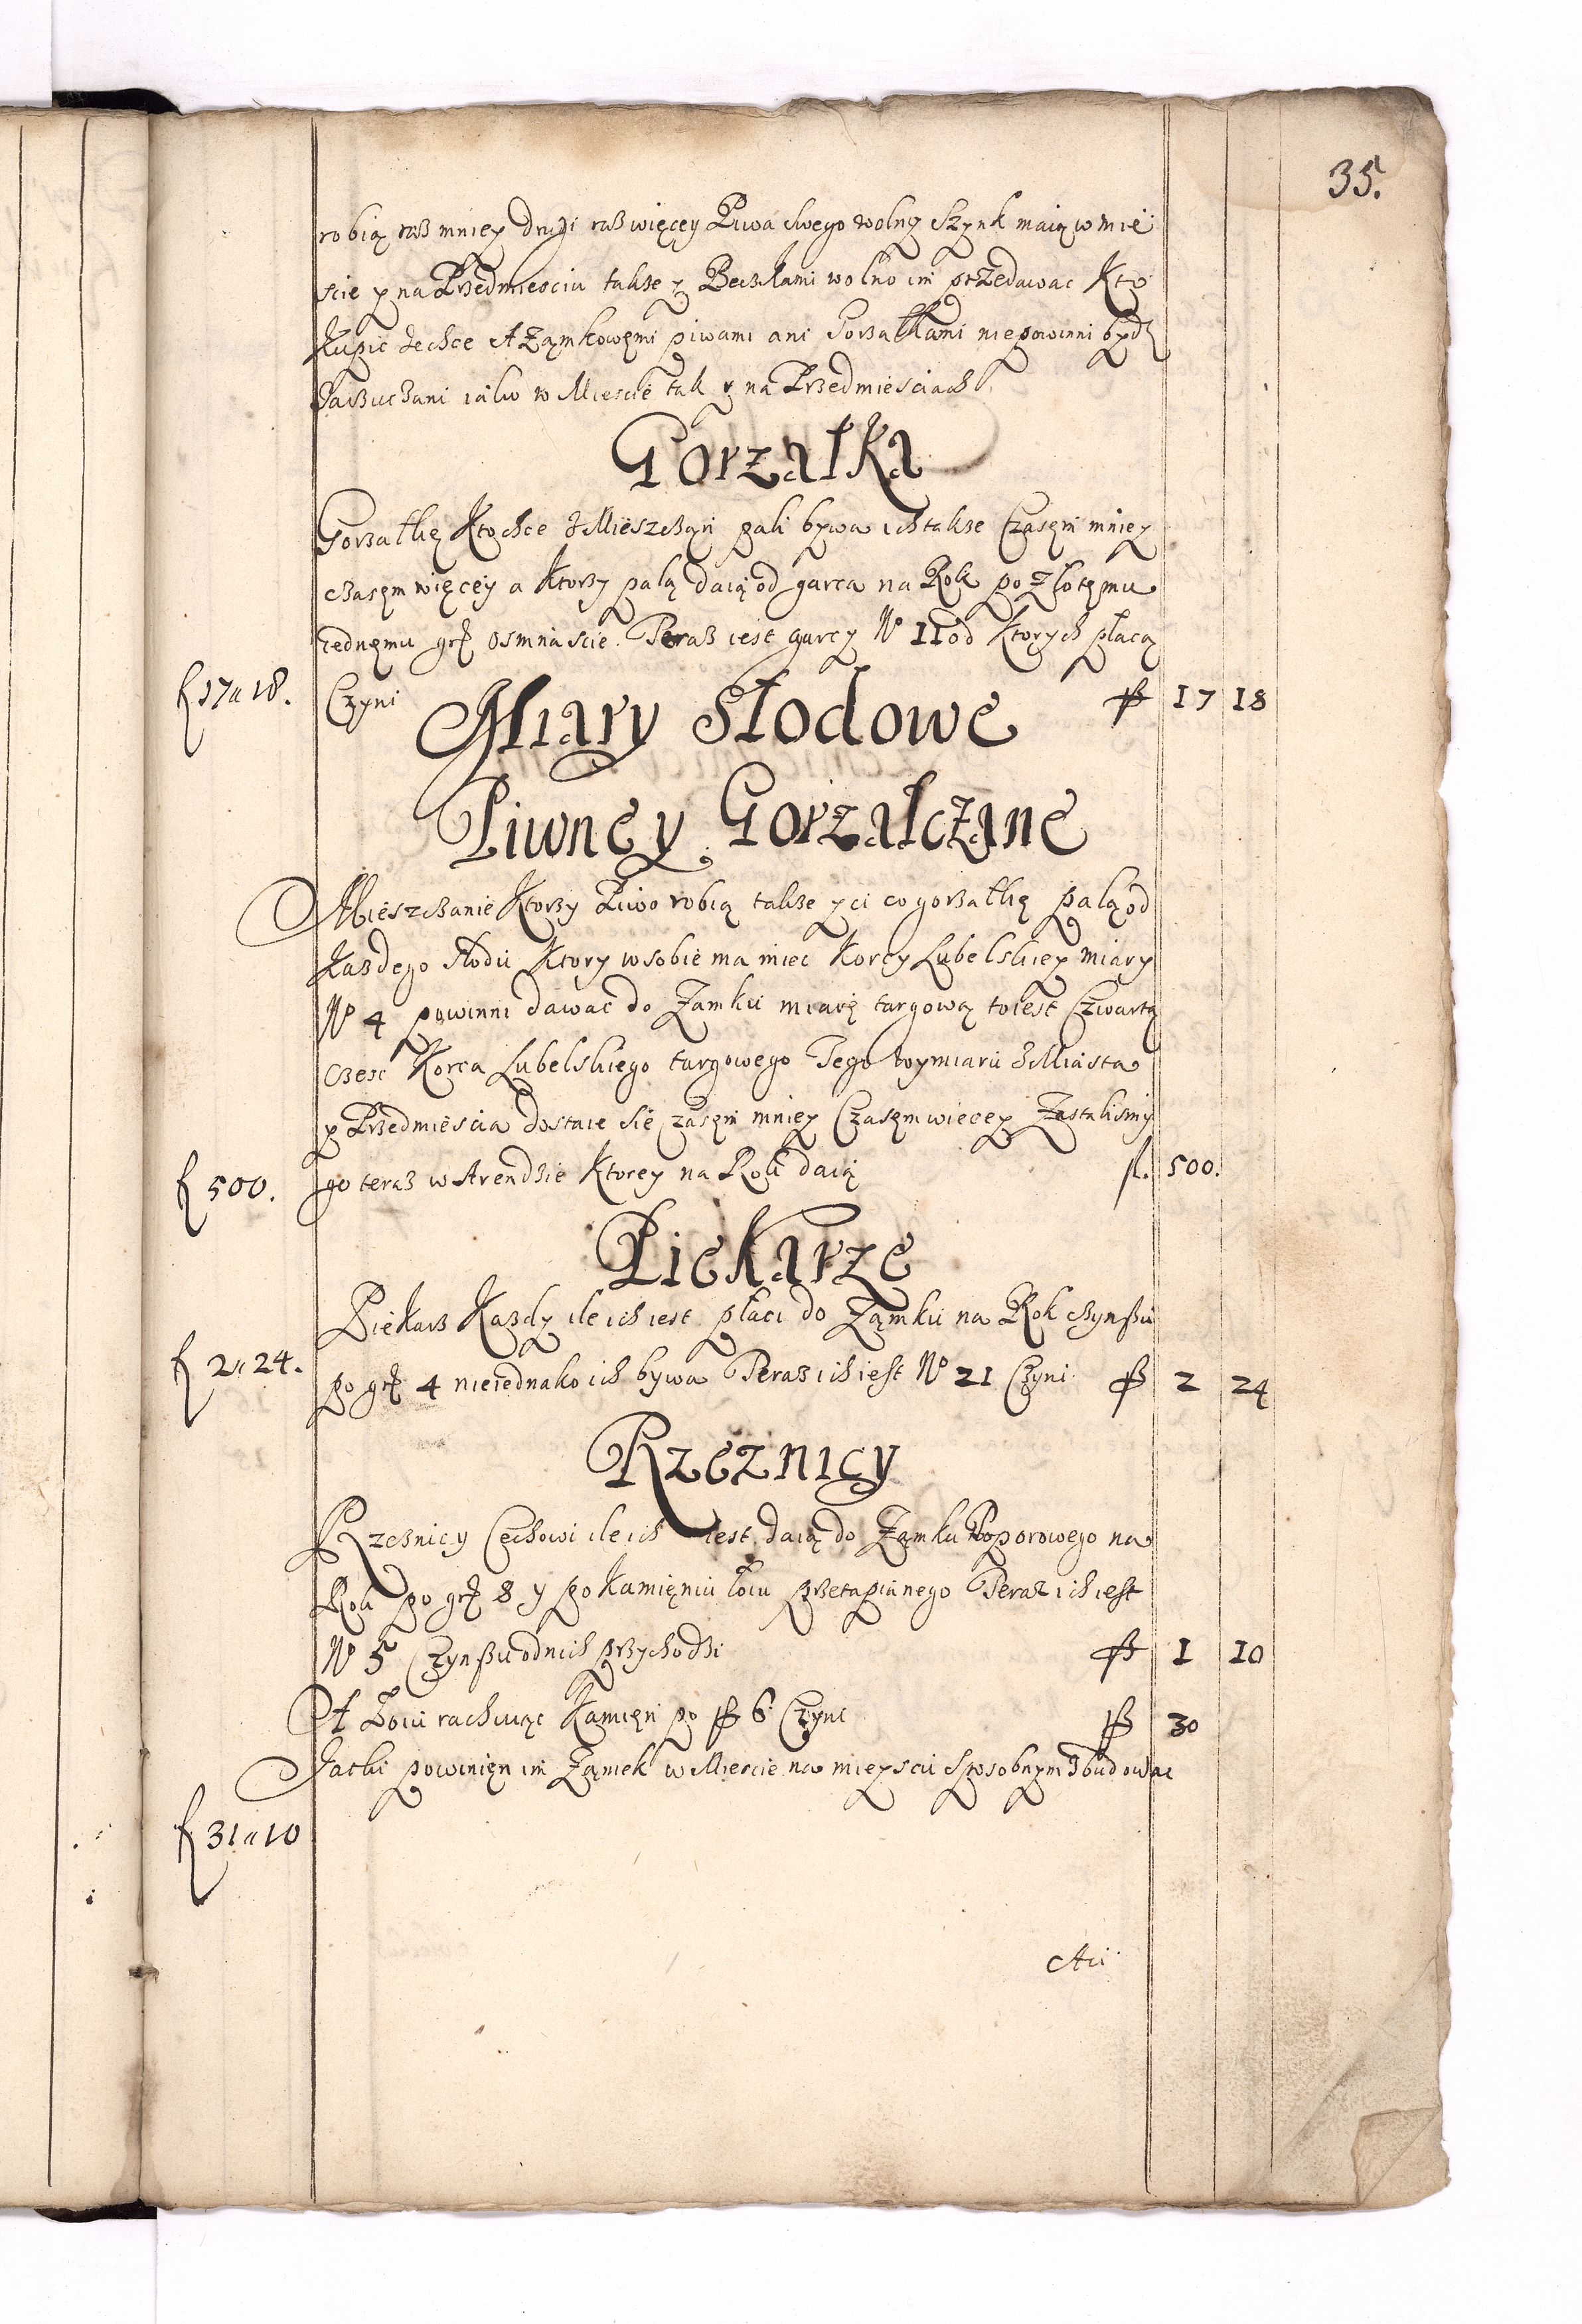 35.
robią raz mniey drugi raz więcey Piwa swego wolny Szynk maią w mie
scie y na Przedmiesciu takze y Beczkami wolno im przedawac Kto
Kupic zechce A Zamkowemi piwami ani Gorzałkami niepowinni bydz
iako w Miescie tak y na Przedmiesciach
Gorzałka
Gorzałkę Kto chce z Mieszczan pali bywa ich takze Czasem mniey
czasem więcey a Ktorzy palą daią od garca na Rok po złotemu
iednemu gr osmnascie. Teraz iest garcy No 11 od Ktorych płacą
f 17 a 18.
Czyni fl 17 18
Miary Słodowe
Piwne y Gorzałczane
Mieszczanie Ktorzy Piwo robią takze y ci co gorzałkę palą od
Kazdego słodu Ktory w sobie ma miec Korcy Lubelskiey miary
No 4 powinni dawac do Zamku miarę targową to iest Czwartą
czesc Korca Lubelskiego targowego Tego wymiaru z Miasta
y Przedmiescia dostaie sie czasem mniey Czasem wiecey Zastalismy
f 500.
go teraz w Arendzie Ktorey na Rok daią fl. 500.
Piekarze
Piekarz Kazdy ile ich iest płaci do Zamku na Rok czynszu
f 2 a 24.
po gr 4 nieiednako ich bywa Teraz ich iest No 21 Czyni fl 2 24
Rzeznicy
Rzeznicy Cechowi ile ich iest daią do Zamku na
Rok po gr 8 y po Kamieniu łoiu przetapianego Teraz ich iest
No 5 Czynszu od nich przychodzi fl 1 10
A Łoiu rachuiąc Kamien po fl 6 Czyni fl 30
Jatki powinien im Zamek w Miescie na mieyscu sposobnym zbudowac
f 31 a 10
Au